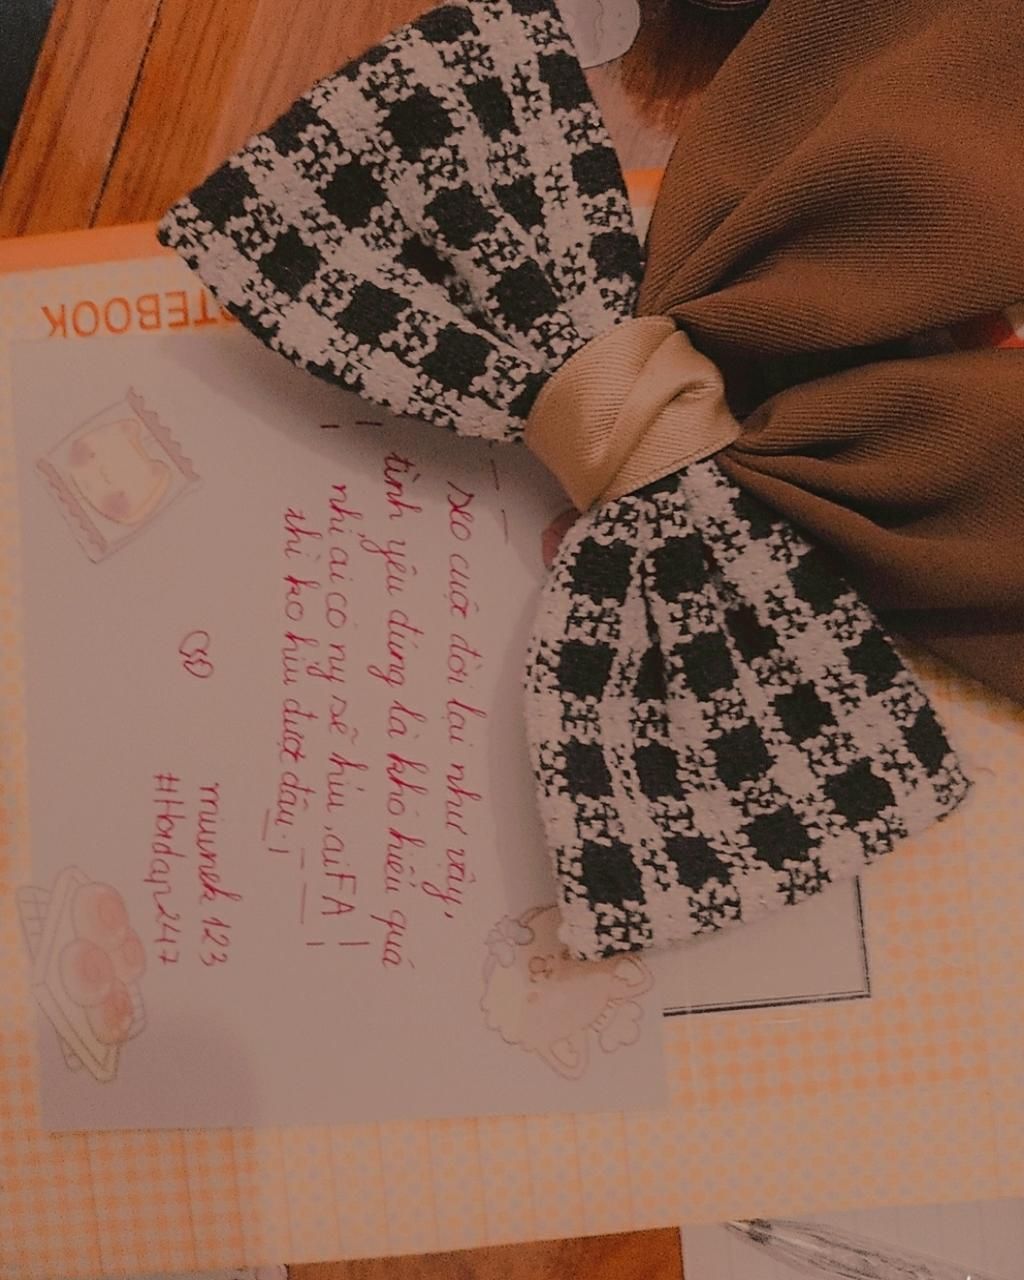 TEBOOK
seo cuộc đời lại như vậy,
tình yêu đúng là khó hiểu quá
nhỉ, ai có ny sẽ hiu, ai FA
thì ko hiu được đâu.
miumek 123
#Hbidap247